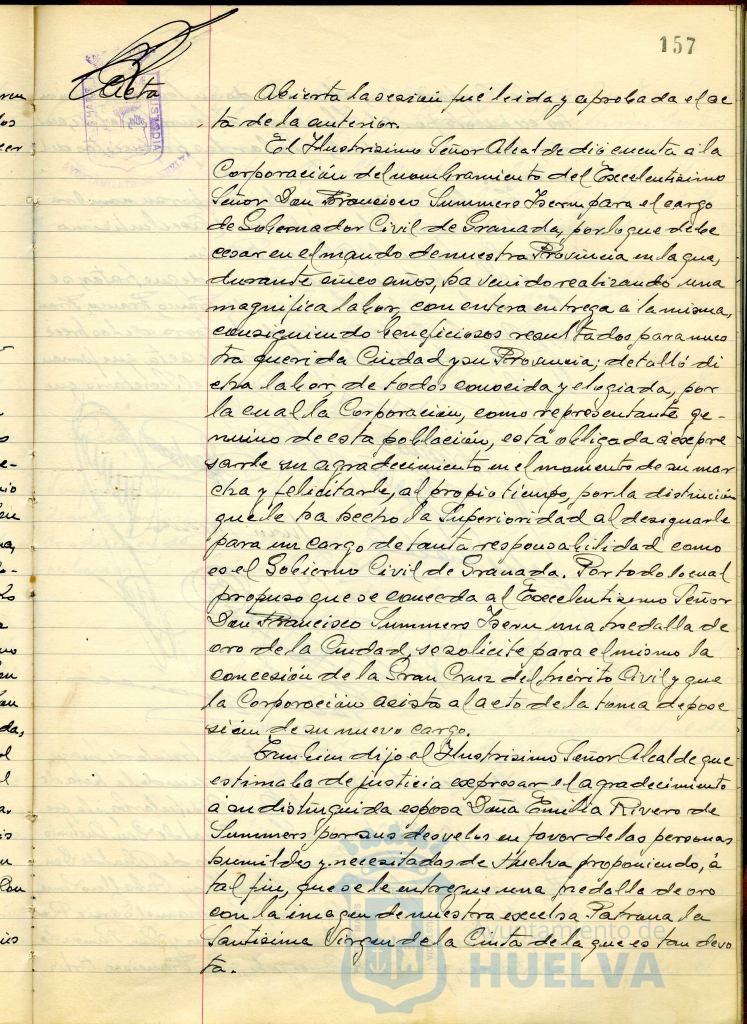 157
Acta
Abierta la sesión fué leida y aprobada el ac
ta de la anterior.
El Ilustrisimo Señor Alcalde dió cuenta a la
Corporación del nombramiento del Excelentisimo
Señor Don Francisco Summers Isern para el cargo
de Gobernador Civil de Granada, por lo que debe
cesar en el mando de nuestra Provincia en la que,
durante cinco años, ha venido realizando una
magnífica labor, con entera entrega a la misma,
consiguiendo beneficiosos resultados para nues
tra querida Ciudad y su Provincia; detalló di
cha labor, de todos conocida y elogiada, por
la cual la Corporación, como representante ge-
nuino de esta población, está obligada a expre
sarle su agradecimiento en el momento de su mar
cha y felicitarle, al propio tiempo, por la distinción
que le ha hecho la Superioridad al designarle
para un cargo de tanta responsabilidad como
es el Gobierno Civil de Granada. Por todo lo cual
propuso que se conceda al Excelentisimo Señor
Don Francisco Summers Isern una medalla de
oro de la Ciudad, se solicite para el mismo la
concesión de la Gran Cruz del Mérito Civil y que
la Corporación asista al acto de la toma de pose
sión de su nuevo cargo.
Tambien dijo el Ilustrisimo Señor Alcalde que
estimaba de justicia expresar el agradecimiento
a su distinguida esposa Doña Emilia Rivero de
Summers por sus desvelos en favor de las personas
humildes y necesitadas de Huelva proponiendo, á
tal fin, que se le entregue una medalla de oro
con la imagen de nuestra excelsa Patrona la
Santisima Virgen de la Cinta de la que es tan devo
ta.
Ayuntamiento de
HUELVA